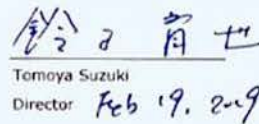 Tomoya Suzuki
Director Feb 19. 2019